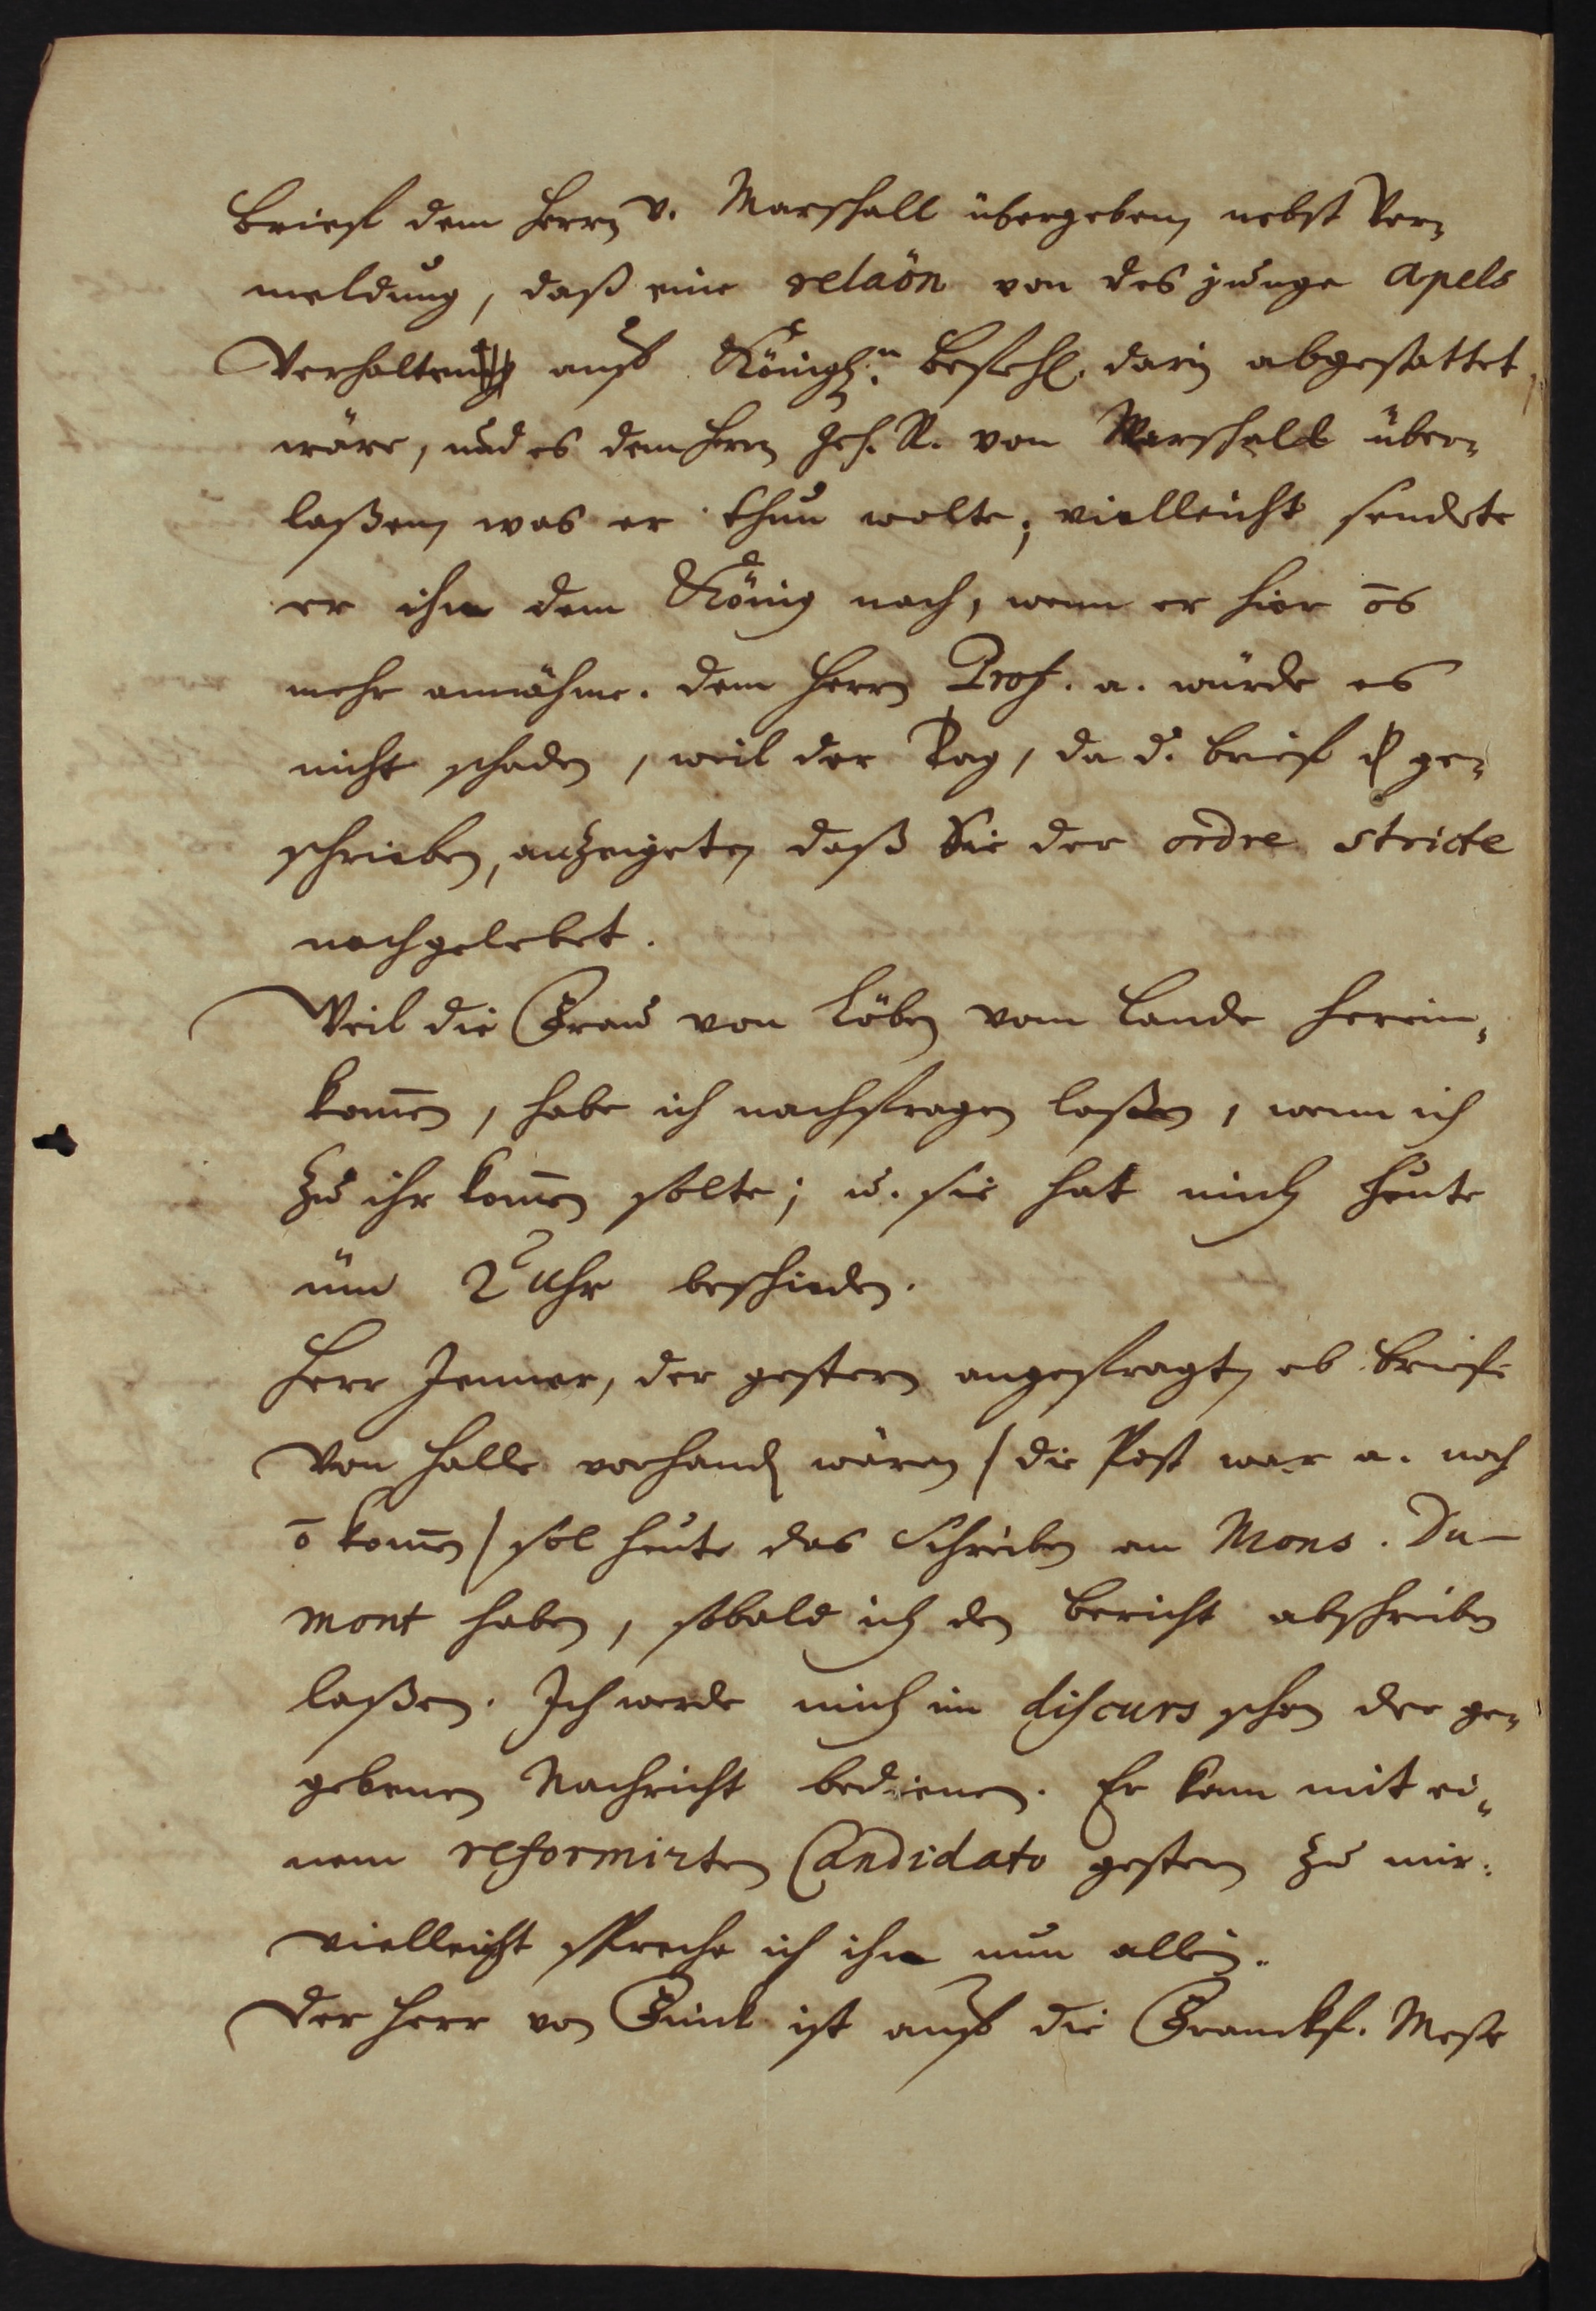 Brieff dem Herrn v. Marschall übergeben, nebst Ver-
meldung, daß eine relaõn von des junge Apels
Verhalten auff Königl.n Befehl darin abgestattet
wäre, und es dem Herrn Geh. R. von Marschall über-
laßen, was er thun wolte; vielleicht sendete
er ihn dem König nach, wenn er hier õs
mehr annähme. dem Herrn Prof. a. würde es
nicht schaden, weil der Tag, da d. brieff ge-
schrieben, anzeigete, daß Sie der ordre stricte
nachgelebet.
Weil die Frau von Löben vom Lande herein-
kom̄en, habe ich nachfragen laßen, wenn ich
zu ihr kom̄en solte; u. sie hat mich heute
üm 2 Uhr beschieden.
Herr Jenner, der gestern angefragt, ob brieffe
von Halle vorhanden wären / die Post war a. noch
õ kom̄en / sol heute das Schreiben an Mons. Du-
mont haben, sobald ich den Bericht abschreiben
laßen. Ich werde mich im discurs schon der ge-
gebenen Nachricht bedienen. Er kam mit ei-
nem reformirten Candidato gestern zu mir:
vielleicht spreche ich ihn nun allein.
Der Herr von Finck ist auff die Franckf. Meße